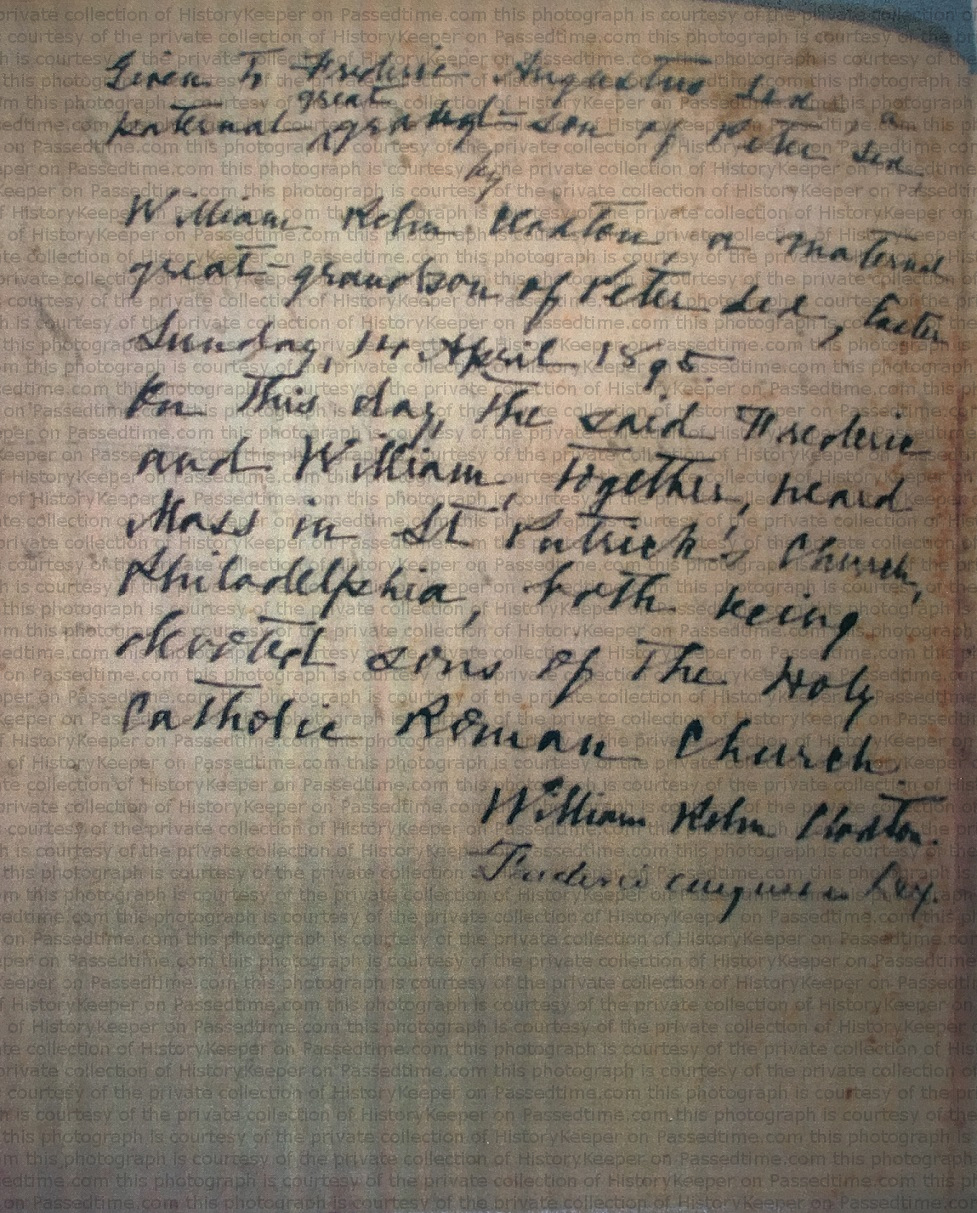 Given to Frederic Augustus Lex, a
great
paternal grand-son of Peter Lex
by
William Rehn Claxton, a maternal
great-grandson of Peter Lex, Easter
Sunday, 14 April 1895.
On this day, the said Frederic
and William, together, heard
Mass in St Patrick's Church,
Philadelphia, both being
devoted sons of the Holy
Catholic Roman Church.
William Rehn Claxton.
Frederic Augustus Lex.
this photograph is courtesy of the private collection of HistoryKeeper on Passedtime.com